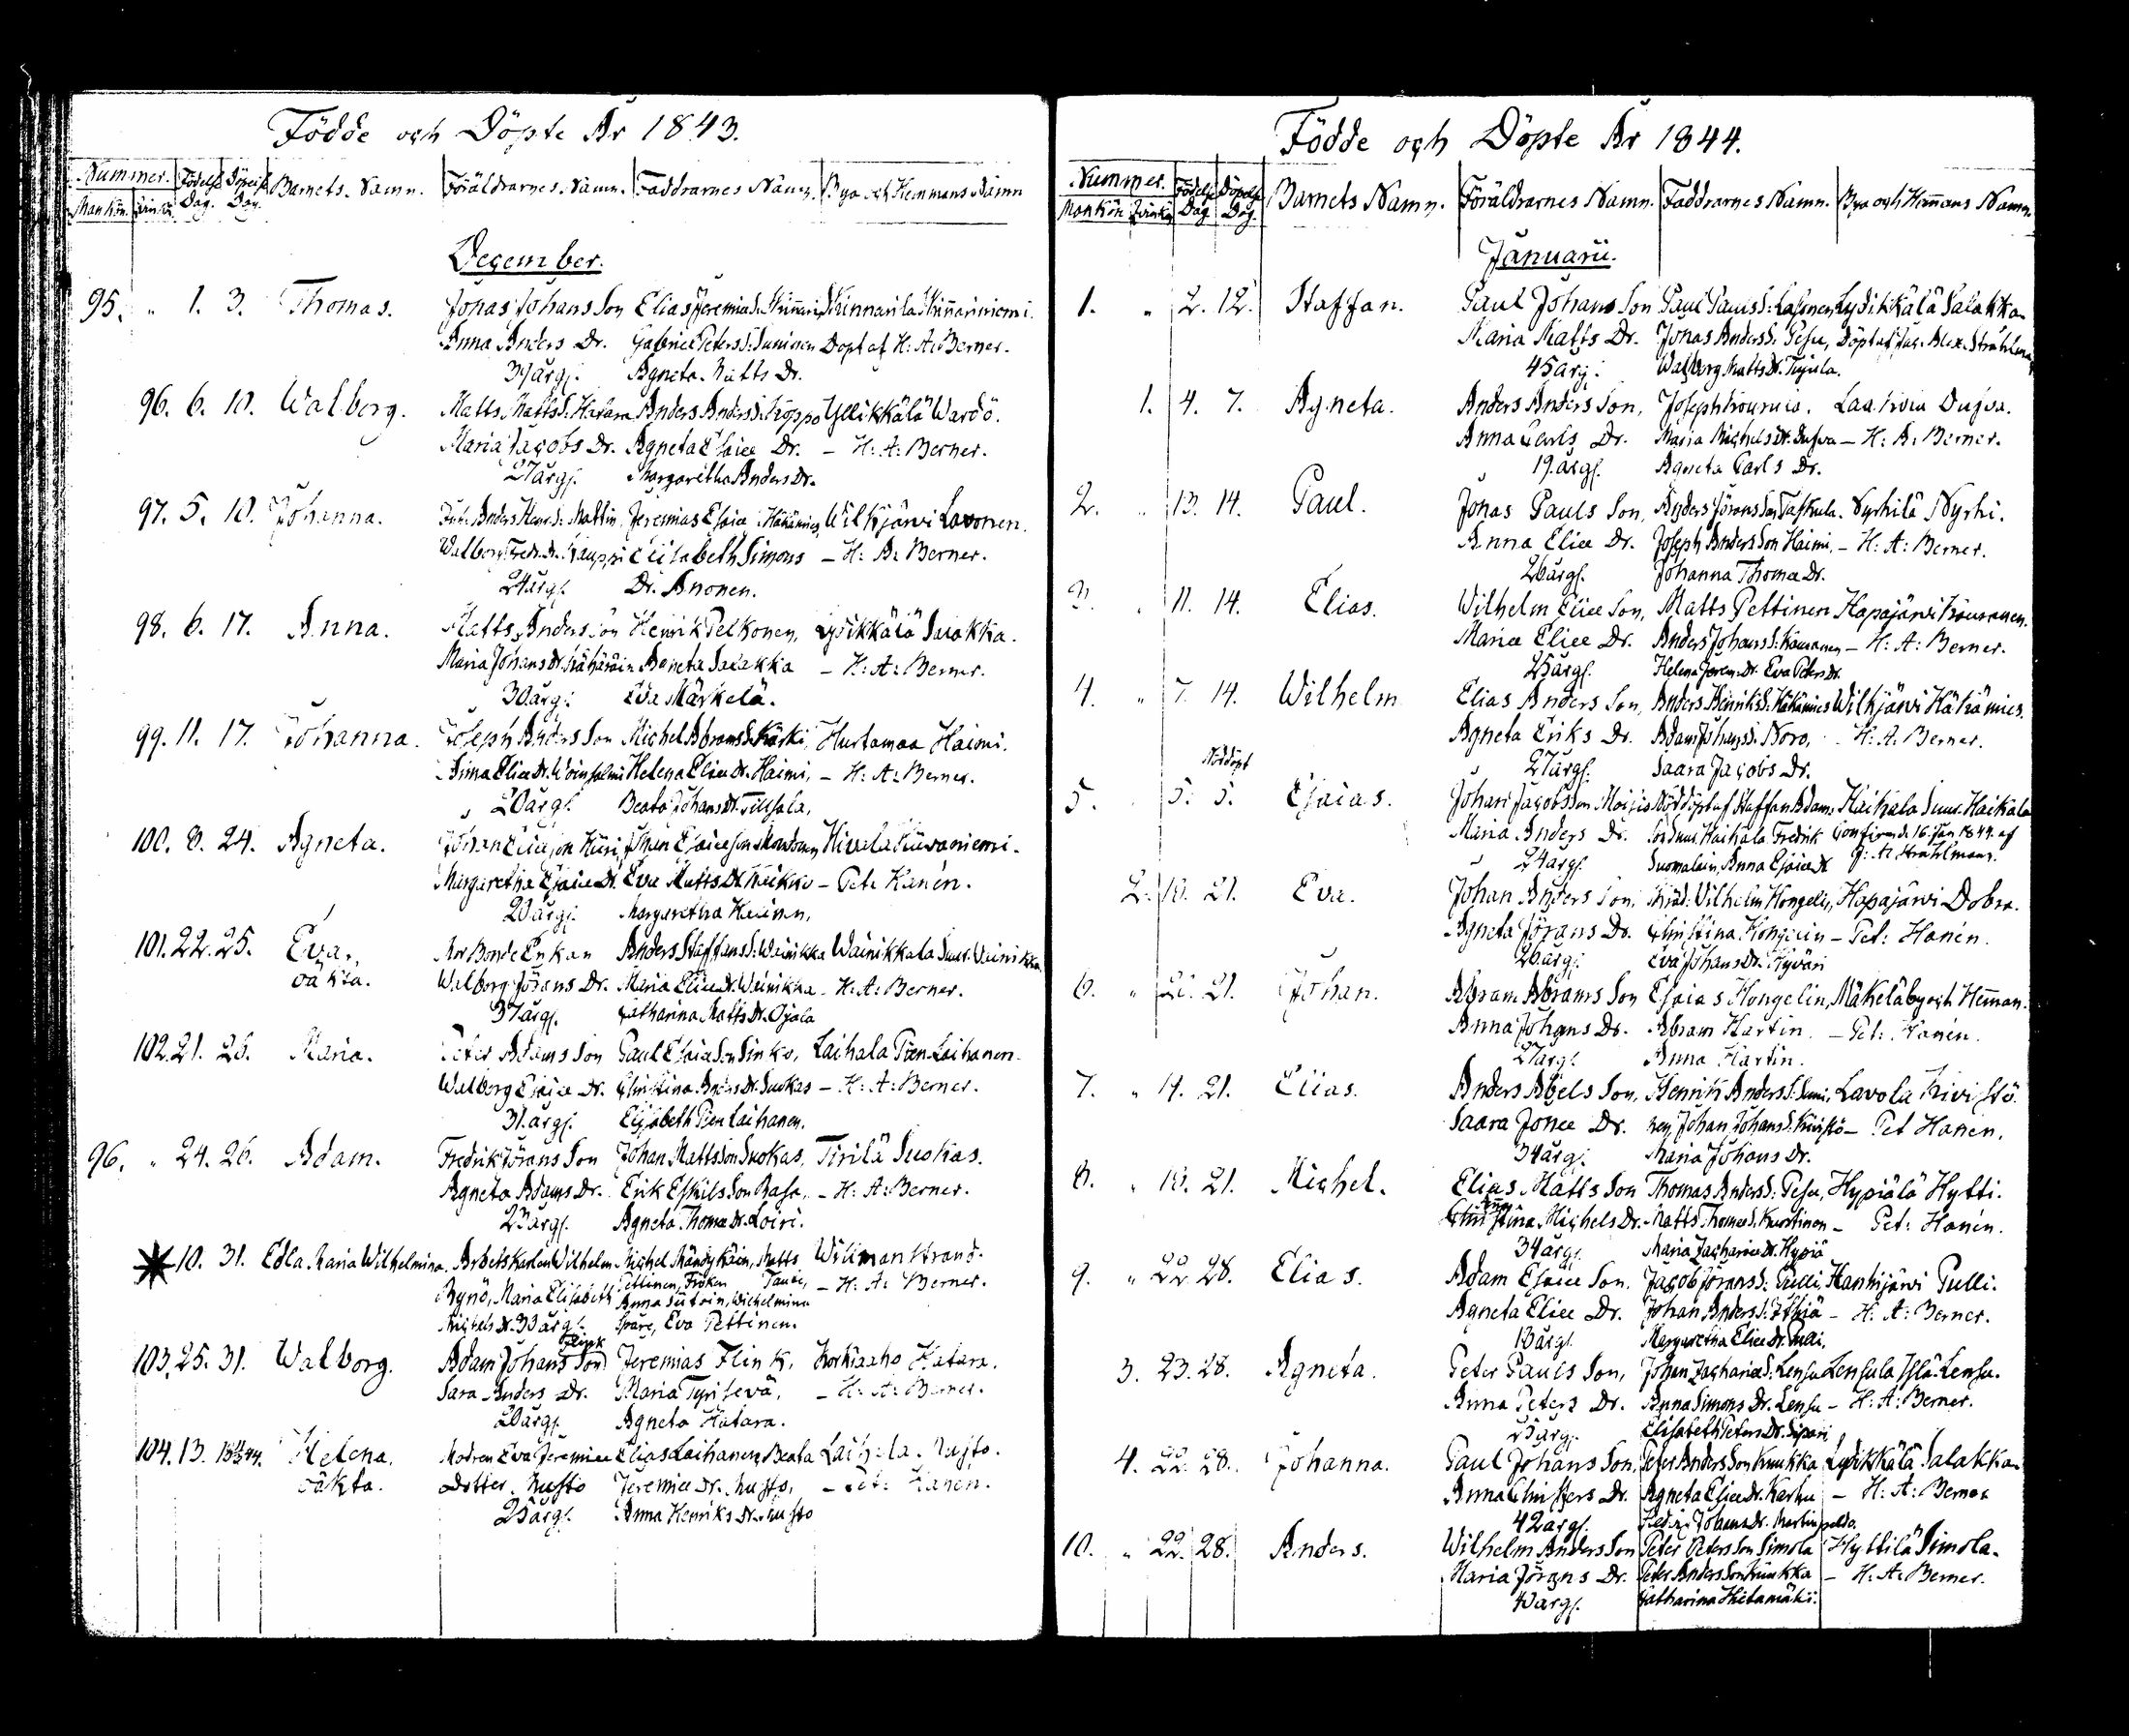 Födde och Döpte År 1843.
Nummer. Födelse Döpelse Barnets Namn. Föräldrarnes Namn. Faddrarnes Namn. Bya och Hemmans Namn
Mankön. Qvinkö. Dag. Dag.
December.
95. " 1. 3. Thomas. Jonas Johans Son Elias Jeremias S. Kinnari, Kinnarila Kinnariniemi.
Anna Anders Dr. Gabriel Peters S. Suninen Döpt af H: A: Berner.
39 årg. Agneta Matts Dr.
96. 6. 10. Walborg. Matts Matts S. Hatara Anders Anders S. Koppo Yllikkälä Wardö.
Maria Jacobs Dr. Agneta Esaiæ Dr. – H: A: Berner.
27 årg. Margaretha Anders Dr.
97. 5. 10. Johanna. Anders Henr. S. Mattin Jeremias Esaiæ Häkämies, Wilkjärvi Lavonen.
Walborg Fredr. Dr. Kauppi Elisabeth Simons – H: A: Berner.
24 årg. Dr. Anonen.
98. 6. 17. Anna. Matts Anders Son Henrik Pelkonen, Lydikkälä Salakka.
Maria Johans Dr. Agneta Salakka – H: A: Berner.
30 årg. Eva Märkelä.
99. 11. 17. Johanna. Joseph Anders Son Michel Abrams S. Kärki, Hurtamaa Haimi.
Anna Eliæ Dr. Helena Eliæ Dr. Haimi, – H: A: Berner.
20 årg. Beata Johans Dr.
100. 8. 24. Agneta. Johan Eliæ Son Johan Esaiæ Son Hivula Kiuvaniemi.
Margaretha Esaiæ Dr. Eva Matts Dr. Heikko – Pet: Hanén.
20 årg. Margaretha
101. 22. 25. Eva, Bonde Enkan Anders Staffans S: Wainikka Wainikkala Suur-Wainikka
oäkta. Walborg Jörans Dr. Maria Eliæ Dr. Wainikka – H: A: Berner.
37 årg. Catharina Matts Dr. Ojala
102. 21. 26. Maria. Peter Adams Son Paul Esaiæ Son Sinko, Laihala Pien-Laihanen.
Walborg Esaiæ Dr. Christina Anders Dr. Suokas – H: A: Berner.
31 årg. Elisabeth Pien Laihanen.
96. " 24. 26. Adam. Fredrik Jörans Son Johan Matts Son Suokas, Tirilä Suokas.
Agneta Adams Dr. Erik Eskils Son Rasa, – H: A: Berner.
23 årg. Agneta Thomæ Dr. Loiri.
10. 31. Edla Maria Wilhelmina. Arbetskarlen Wilhelm Michel Mändykäin, Matts Willmanstrand.
Rynö, Maria Elisabeth Pettinen, Fröken Taube, – H: A: Berner.
Michels Dr. 33 årg. Anna Siitoin, Wilhelmina
Spåre, Eva Pettinen.
103. 25. 31. Walborg. Adam Johans Son Flink Jeremias Flink, Korkiaaho Hatara.
Sara Anders Dr. Maria Tyrisevä, – H: A: Berner.
20 årg. Agneta Hatara.
104. 13. Helena. Modren Eva Jeremiæ Elias Laihanen, Beata Laihala Musto.
oäkta. Dotter Musto Jeremiæ Dr. Musto, – Pet: Hanén.
25 årg. Anna Henriks Dr. Musto
Födde och Döpte År 1844.
Nummer. Födelse Döpelse Barnets Namn. Föräldrarnes Namn. Faddrarnes Namn. Bya och Hemmans Namn.
Mankön Qvinkö Dag Dag.
Januarii.
1. " 2. 12. Staffan. Paul Johans Son Paul Pauls S: Lasonen, Lydikkälä Salakka.
Maria Matts Dr. Jonas Anders S. Pesu, Döpt af Alex. Stråhlman
45 årg. Walborg Matts Dr. Tujula.
1. 4. 7. Agneta. Anders Anders Son, Joseph Kouruia. Laukola Dujva.
Anna Carls Dr. Maria Michels Dr. Dujva – H: A: Berner.
19 årg. Agneta Carls Dr.
2. " 13. 14. Paul. Jonas Pauls Son, Anders Jörans Son Taskula. Nyrhilä Nyrhi.
Anna Eliæ Dr. Joseph Anders Son Haimi, – H: A: Berner.
26 årg. Johanna Thomæ Dr.
3. " 11. 14. Elias. Wilhelm Eliæ Son, Matts Pettinen Hapajärvi Kouranen.
Maria Eliæ Dr. Anders Johans S: Kauranen – H: A: Berner.
25 årg. Helena Jerem. Dr. Eva Peters Dr.
4. " 7. 14. Wilhelm Elias Anders Son, Anders Henriks S: Häkämies Wilkjärvi Häkämies.
Agneta Eriks Dr. Adam Johans S. Noro, H: A: Berner.
27 årg. Saara Jacobs Dr.
Nöddöpt
5. " 5. 5. Esaias. Johan Jacobs Son Moisio Nöddöpt af Staffan Adams Haikala Suur-Haikala
Maria Anders Dr. Son Suur Haikala Fredrik Confirm. d. 16 Jan 1844 af
24 årg. Suomalain, Anna Esaiæ Dr. A: Stråhlman.
2. 18. 21. Eva. Johan Anders Son, Wilhelm Hongelin, Hapajärvi Dobra.
Agneta Jörans Dr. Christina Hongelin – Pet: Hanén.
26 årg. Eva Johans Dr. Hyväri
6. " 21. 21. Johan. Abram Abrams Son Esaias Hongelin, Mäkelä by och Heman.
Anna Johans Dr. Abram Hartin – Pet: Hanén.
27 årg. Anna Hartin.
7. " 14. 21. Elias. Anders Abels Son, Henrik Anders S: Lavola Kivistö.
Saara Jonæ Dr. Johan Johans S. Kivistö – Pet Hanén.
34 årg. Maria Johans Dr.
8. " 18. 21. Michel. Elias Matts Son Thomas Anders S: Pesu, Hypiälä Hytti.
Christina Michels Dr. Matts Thomæ S. Kurstinen – Pet: Hanén.
34 årg. Maria Zachariæ Dr. Hypiä
9. " 22. 28. Elias. Adam Esaiæ Son. Jacob Jörans S: Pulli Hanhijärvi Pulli.
Agneta Eliæ Dr. Johan Anders S. – H: A: Berner.
årg. Margaretha Eliæ Dr. Pulli.
3. 23. 28. Agneta. Peter Pauls Son, Johan Zachariæ S: Lensu Lensula Lensu.
Anna Peters Dr. Anna Simons Dr. Lensu – H: A: Berner.
25 årg. Elisabeth Peters Dr. Sipari
4. 22. 28. Johanna. Paul Johans Son, Peter Anders Son Kuukka Lydikkälä Salakka.
Anna Christers Dr. Agneta Eliæ Dr. Karhu – H: A: Berner
42 årg. Johans Dr. Martinpelto.
10. " 22. 28. Anders. Wilhelm Anders Son Peter Peters Son Simola Hyttilä Simola.
Maria Jörans Dr. Peter Anders Son Kuukka – H: A: Berner.
40 årg. Catharina Hietamäki.